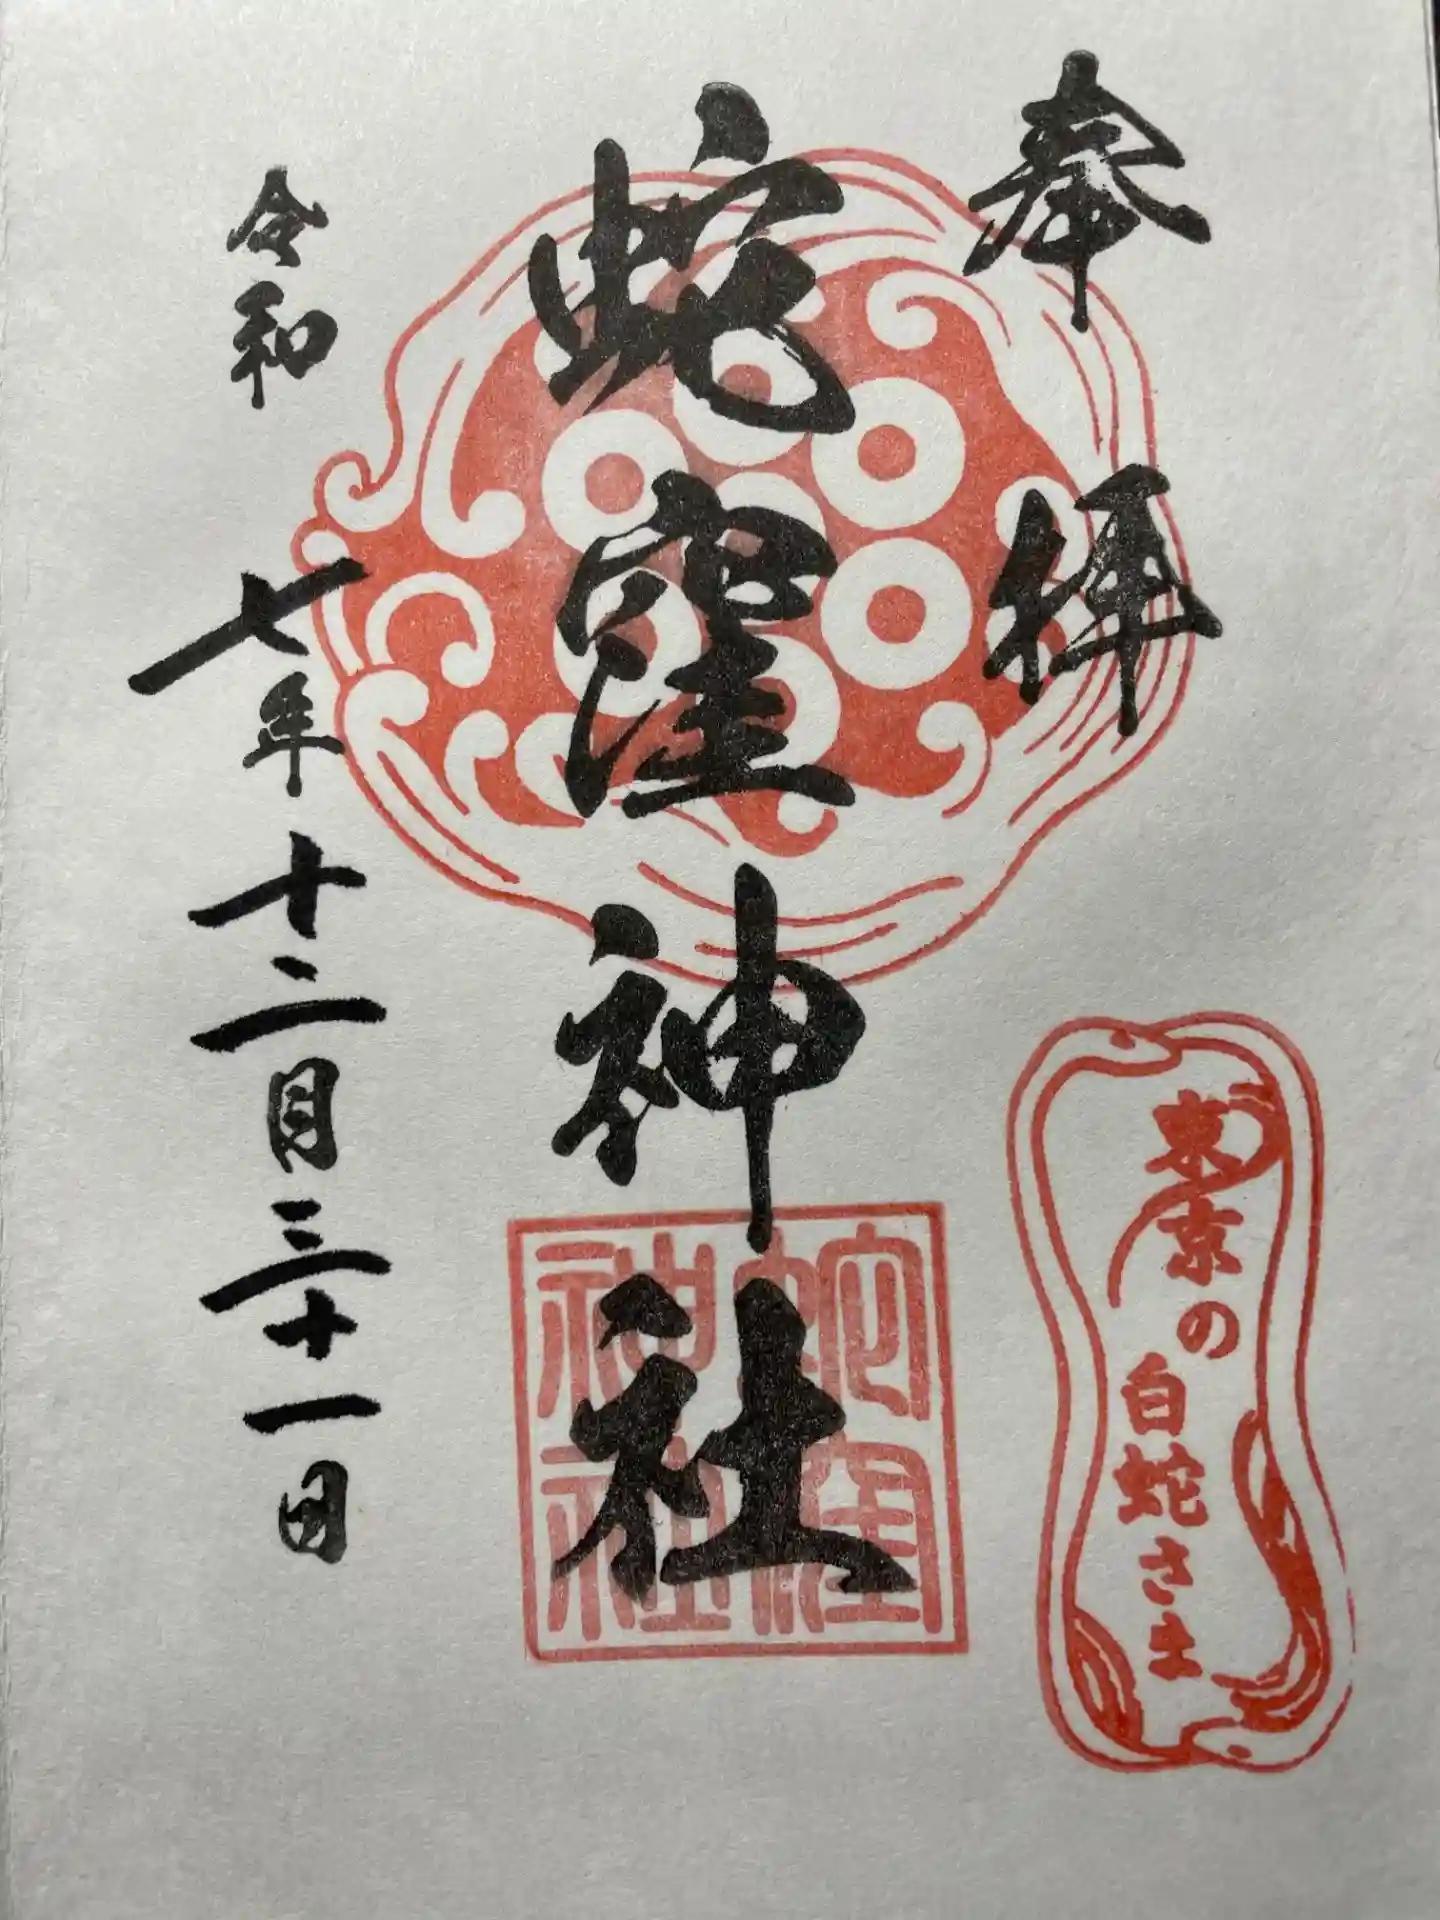 奉拝
東京の
白蛇さま
蛇窪神社
蛇窪
神社
令和七年十二月三十一日